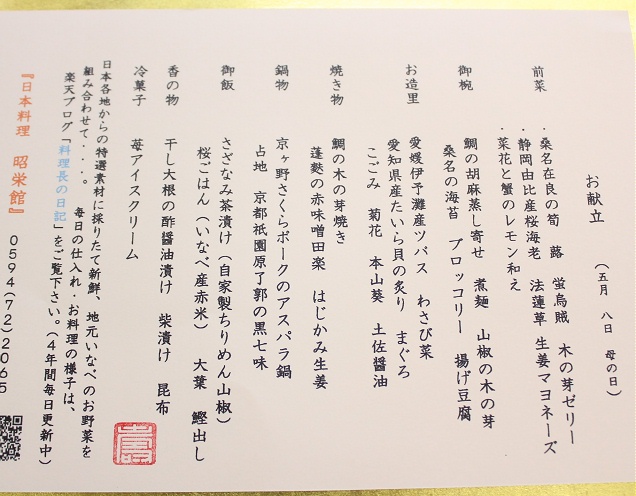 お献立　（五月　八日　母の日）
前菜　・桑名在良の筍　蕗　蛍烏賊　木の芽ゼリー
・静岡由比産桜海老　法蓮草　生姜マヨネーズ
・菜花と蟹のレモン和え
御椀　鯛の胡麻蒸し寄せ　煮麺　山椒の木の芽
桑名の海苔　ブロッコリー　揚げ豆腐
お造里　愛媛伊予灘産ツバス　わさび菜
愛知県産たいら貝の炙り　まぐろ
こごみ　菊花　本山葵　土佐醤油
焼き物　鯛の木の芽焼き
蓬麩の赤味噌田楽　はじかみ生姜
鍋物　京ヶ野さくらポークのアスパラ鍋
占地　京都祇園原了郭の黒七味
御飯　さざなみ茶漬け（自家製ちりめん山椒）
桜ごはん（いなべ産赤米）　大葉　鰹出し
香の物　干し大根の酢醤油漬け　柴漬け　昆布
冷菓子　苺アイスクリーム
日本各地からの特選素材に採りたて新鮮、地元いなべのお野菜を
組み合わせて・・・。　毎日の仕入れ・お料理の様子は、
楽天ブログ「料理長の日記」をご覧下さい。（４年間毎日更新中）
『日本料理　昭栄館』　０５９４（７２）２０６５